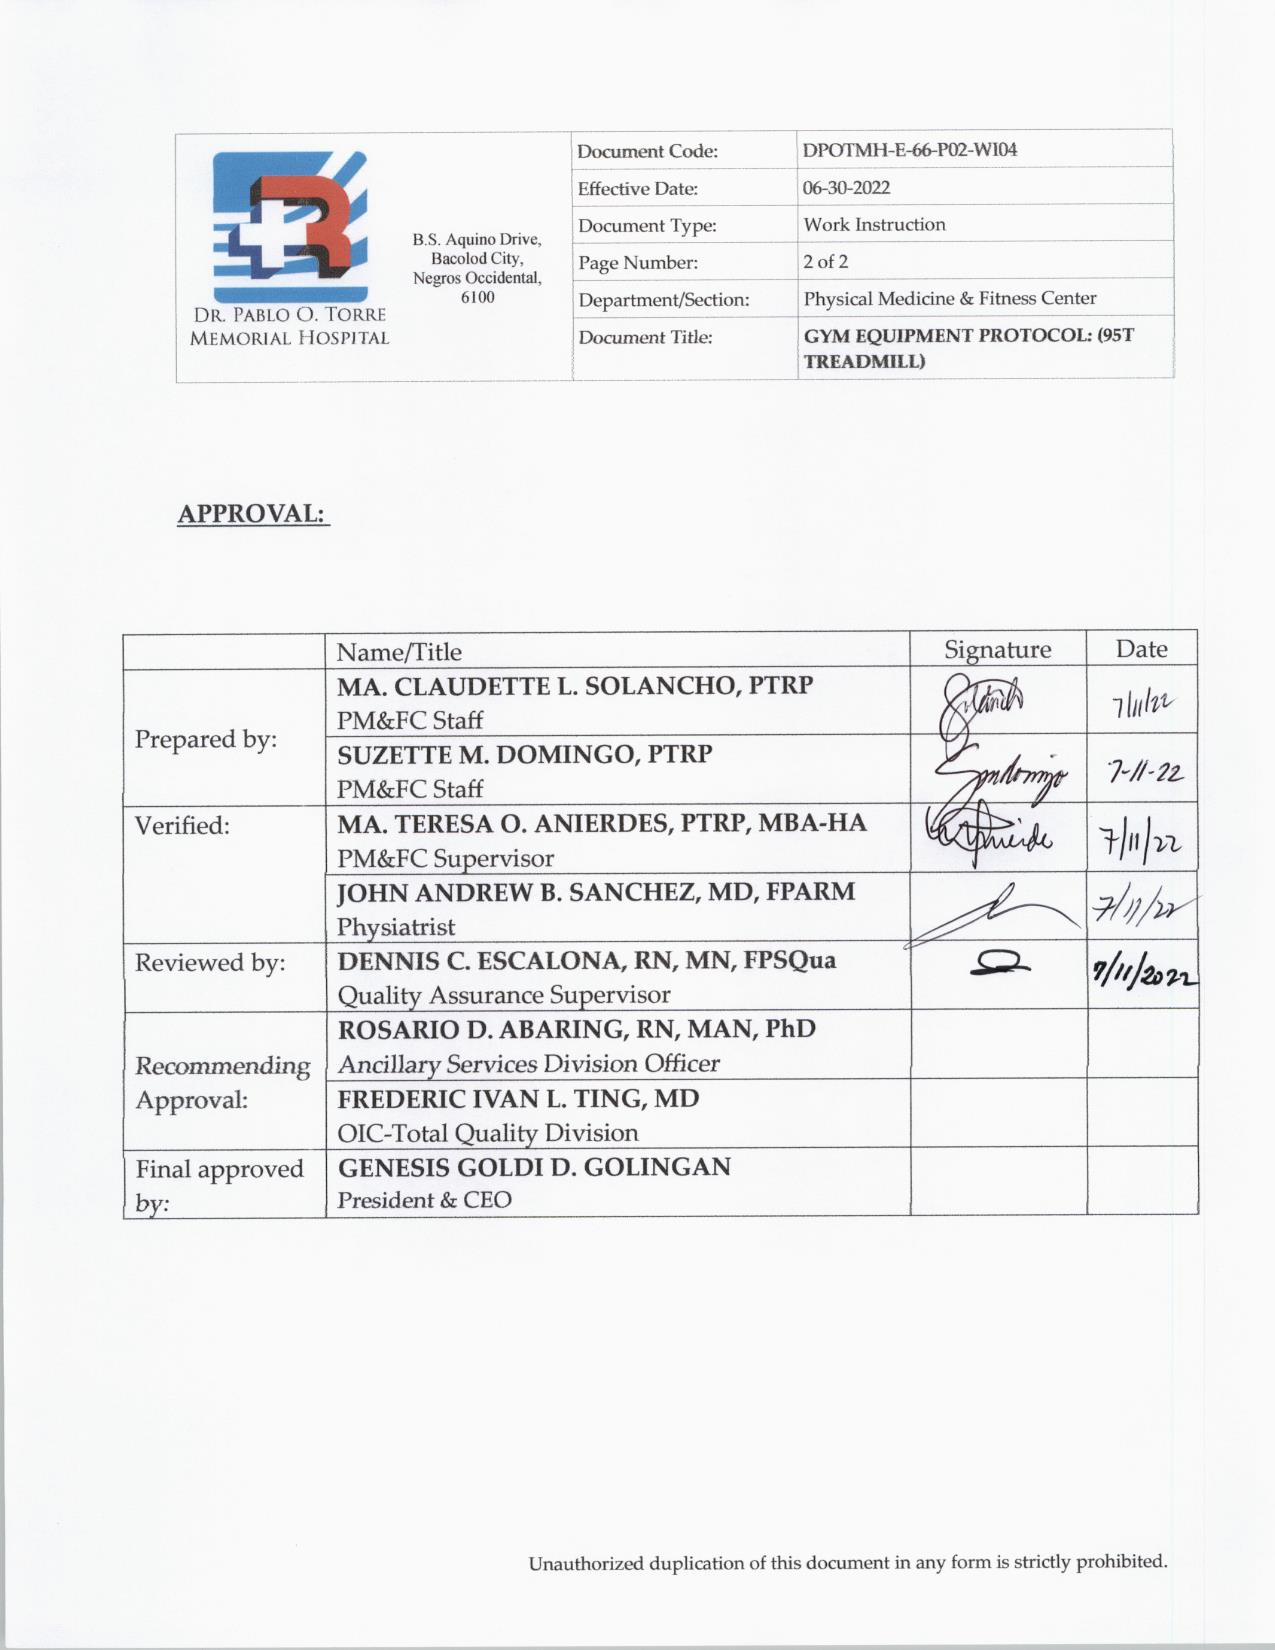 DR. PABLO O. TORRE
MEMORIAL HOSPITAL
B.S. Aquino Drive,
Bacolod City,
Negros Occidental,
6100
Document Code: DPOTMH-E-66-P02-WI04
Effective Date: 06-30-2022
Document Type: Work Instruction
Page Number: 2 of 2
Department/Section: Physical Medicine & Fitness Center
Document Title: GYM EQUIPMENT PROTOCOL: (95T
TREADMILL)
APPROVAL:
Name/Title Signature Date
Prepared by:
MA. CLAUDETTE L. SOLANCHO, PTRP
PM&FC Staff
7/11/22
SUZETTE M. DOMINGO, PTRP
PM&FC Staff
7-11-22
Verified:
MA. TERESA O. ANIERDES, PTRP, MBA-HA
PM&FC Supervisor
7/11/22
JOHN ANDREW B. SANCHEZ, MD, FPARM
Physiatrist
7/11/22
Reviewed by:
DENNIS C. ESCALONA, RN, MN, FPSQua
Quality Assurance Supervisor
7/11/2022
Recommending
Approval:
ROSARIO D. ABARING, RN, MAN, PhD
Ancillary Services Division Officer
FREDERIC IVAN L. TING, MD
OIC-Total Quality Division
Final approved
by:
GENESIS GOLDI D. GOLINGAN
President & CEO
Unauthorized duplication of this document in any form is strictly prohibited.